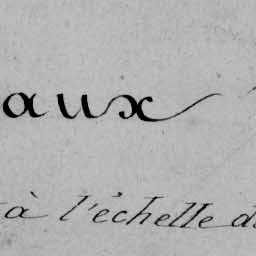 aux
à l'échelle de